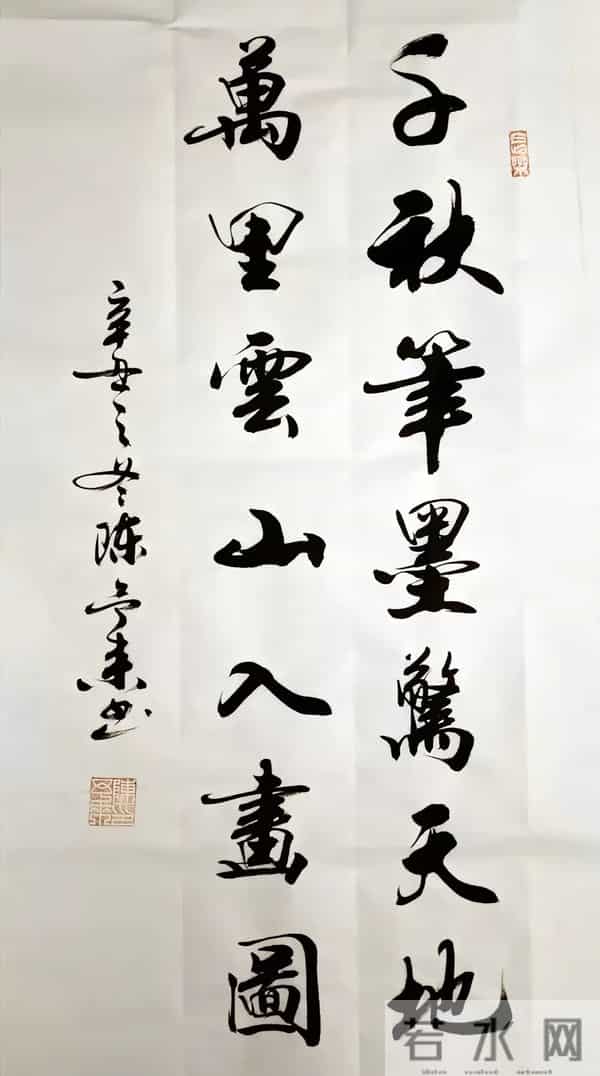 千秋筆墨驚天地
萬里雲山入畫圖
辛丑之冬陈书
若水网